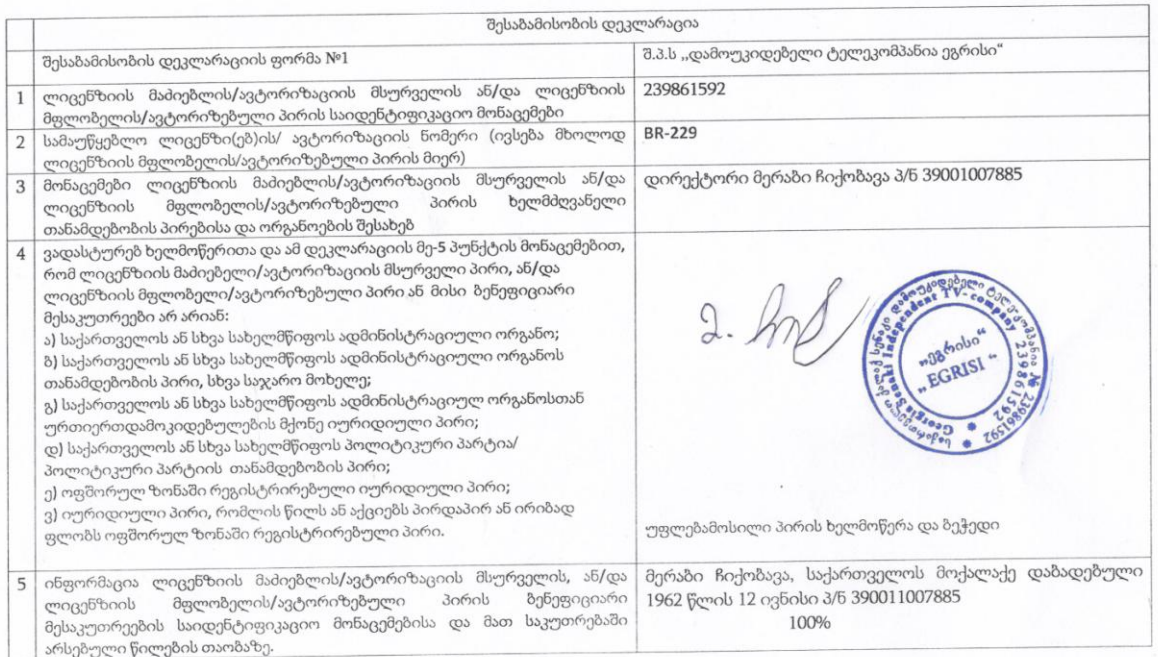 შესაბამისობის დეკლარაცია
შესაბამისობის დეკლარაციის ფორმა №1
შ.პ.ს „დამოუკიდებელი ტელეკომპანია ეგრისი“
1
ლიცენზიის მაძიებლის/ავტორიზაციის მსურველის ან/და ლიცენზიის
მფლობელის/ავტორიზებული პირის საიდენტიფიკაციო მონაცემები
239861592
2
სამაუწყებლო ლიცენზი(ებ)ის/ ავტორიზაციის ნომერი (ივსება მხოლოდ
ლიცენზიის მფლობელის/ავტორიზებული პირის მიერ)
BR-229
3
მონაცემები ლიცენზიის მაძიებლის/ავტორიზაციის მსურველის ან/და
ლიცენზიის მფლობელის/ავტორიზებული პირის ხელმძღვანელი
თანამდებობის პირებისა და ორგანოების შესახებ
დირექტორი მერაბი ჩიქობავა პ/ნ 39001007885
4
ვადასტურებ ხელმოწერითა და ამ დეკლარაციის მე-5 პუნქტის მონაცემებით,
რომ ლიცენზიის მაძიებელი/ავტორიზაციის მსურველი პირი, ან/და
ლიცენზიის მფლობელი/ავტორიზებული პირი ან მისი ბენეფიციარი
მესაკუთრეები არ არიან:
ა) საქართველოს ან სხვა სახელმწიფოს ადმინისტრაციული ორგანო;
ბ) საქართველოს ან სხვა სახელმწიფოს ადმინისტრაციული ორგანოს
თანამდებობის პირი, სხვა საჯარო მოხელე;
გ) საქართველოს ან სხვა სახელმწიფოს ადმინისტრაციულ ორგანოსთან
ურთიერთდამოკიდებულების მქონე იურიდიული პირი;
დ) საქართველოს ან სხვა სახელმწიფოს პოლიტიკური პარტია/
პოლიტიკური პარტიის თანამდებობის პირი;
ე) ოფშორულ ზონაში რეგისტრირებული იურიდიული პირი;
ვ) იურიდიული პირი, რომლის წილს ან აქციებს პირდაპირ ან ირიბად
ფლობს ოფშორულ ზონაში რეგისტრირებული პირი.
საქართველო ქალაქ სენაკი დამოუკიდებელი ტელეკომპანია № 239861592
Georgia Senaki Independent TV-company 239861592
„ეგრისი“
„EGRISI“
უფლებამოსილი პირის ხელმოწერა და ბეჭედი
5
ინფორმაცია ლიცენზიის მაძიებლის/ავტორიზაციის მსურველის, ან/და
ლიცენზიის მფლობელის/ავტორიზებული პირის ბენეფიციარი
მესაკუთრეების საიდენტიფიკაციო მონაცემებისა და მათ საკუთრებაში
არსებული წილების თაობაზე.
მერაბი ჩიქობავა, საქართველოს მოქალაქე დაბადებული
1962 წლის 12 ივნისი პ/ნ 390011007885
100%